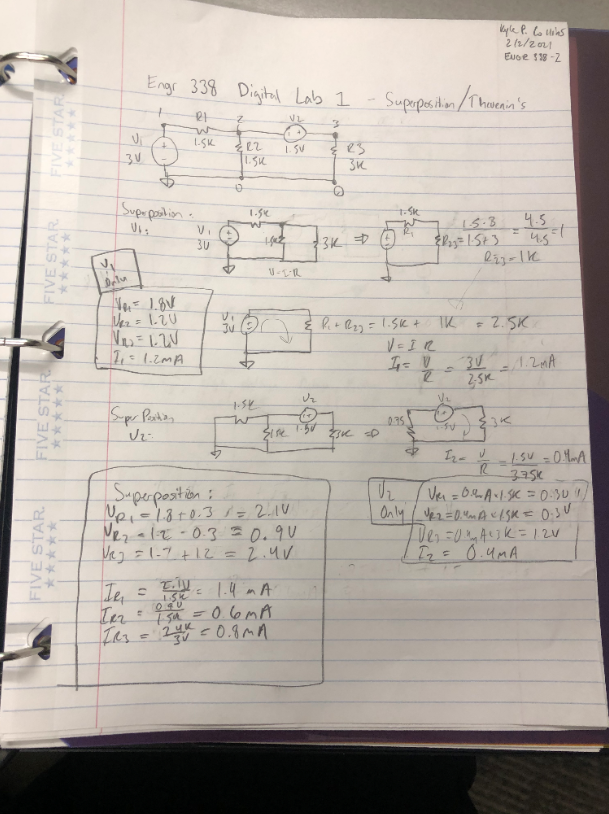 Kyle P. Collins
2/2/2021
ENGR 338-2
Engr 338 Digital Lab 1 - Superposition/Thevenin's
1 R1 2 V2 3
1.5K 1.5V
V1 R2 R3
3V 1.5K 3K
0 0
Superposition.
V1:
1.5K 1.5K
V1 3V 1.5K 3K ⇒ R1 R23 = 1.5·3 / 1.5+3 = 4.5 / 4.5 = 1
V=I·R R23=1K
V1 Only
VR1 = 1.8V
VR2 = 1.2V
VR3 = 1.2V
I1 = 1.2mA
V1 3V R1 + R23 = 1.5K + 1K = 2.5K
V = I R
I1 = V/R = 3V/2.5K = 1.2mA
Super Position
V2:
1.5K V2 V2
1.5K 1.5V 3K ⇒ 0.75 1.5V 3K
I2 = V/R = 1.5V/3.75K = 0.4mA
Superposition:
VR1 = 1.8 + 0.3 = 2.1V
VR2 = 1.2 - 0.3 = 0.9V
VR3 = 1.2 + 1.2 = 2.4V
IR1 = 2.1V/1.5K = 1.4 mA
IR2 = 0.9V/1.5K = 0.6mA
IR3 = 2.4K/3V = 0.8mA
V2 Only
VR1 = 0.2mA·1.5K = 0.3V
VR2 = 0.2mA·1.5K = 0.3V
VR3 = 0.4mA·3K = 1.2V
I2 = 0.4mA
FIVE STAR.
FIVE STAR.
FIVE STAR.
FIVE STAR.